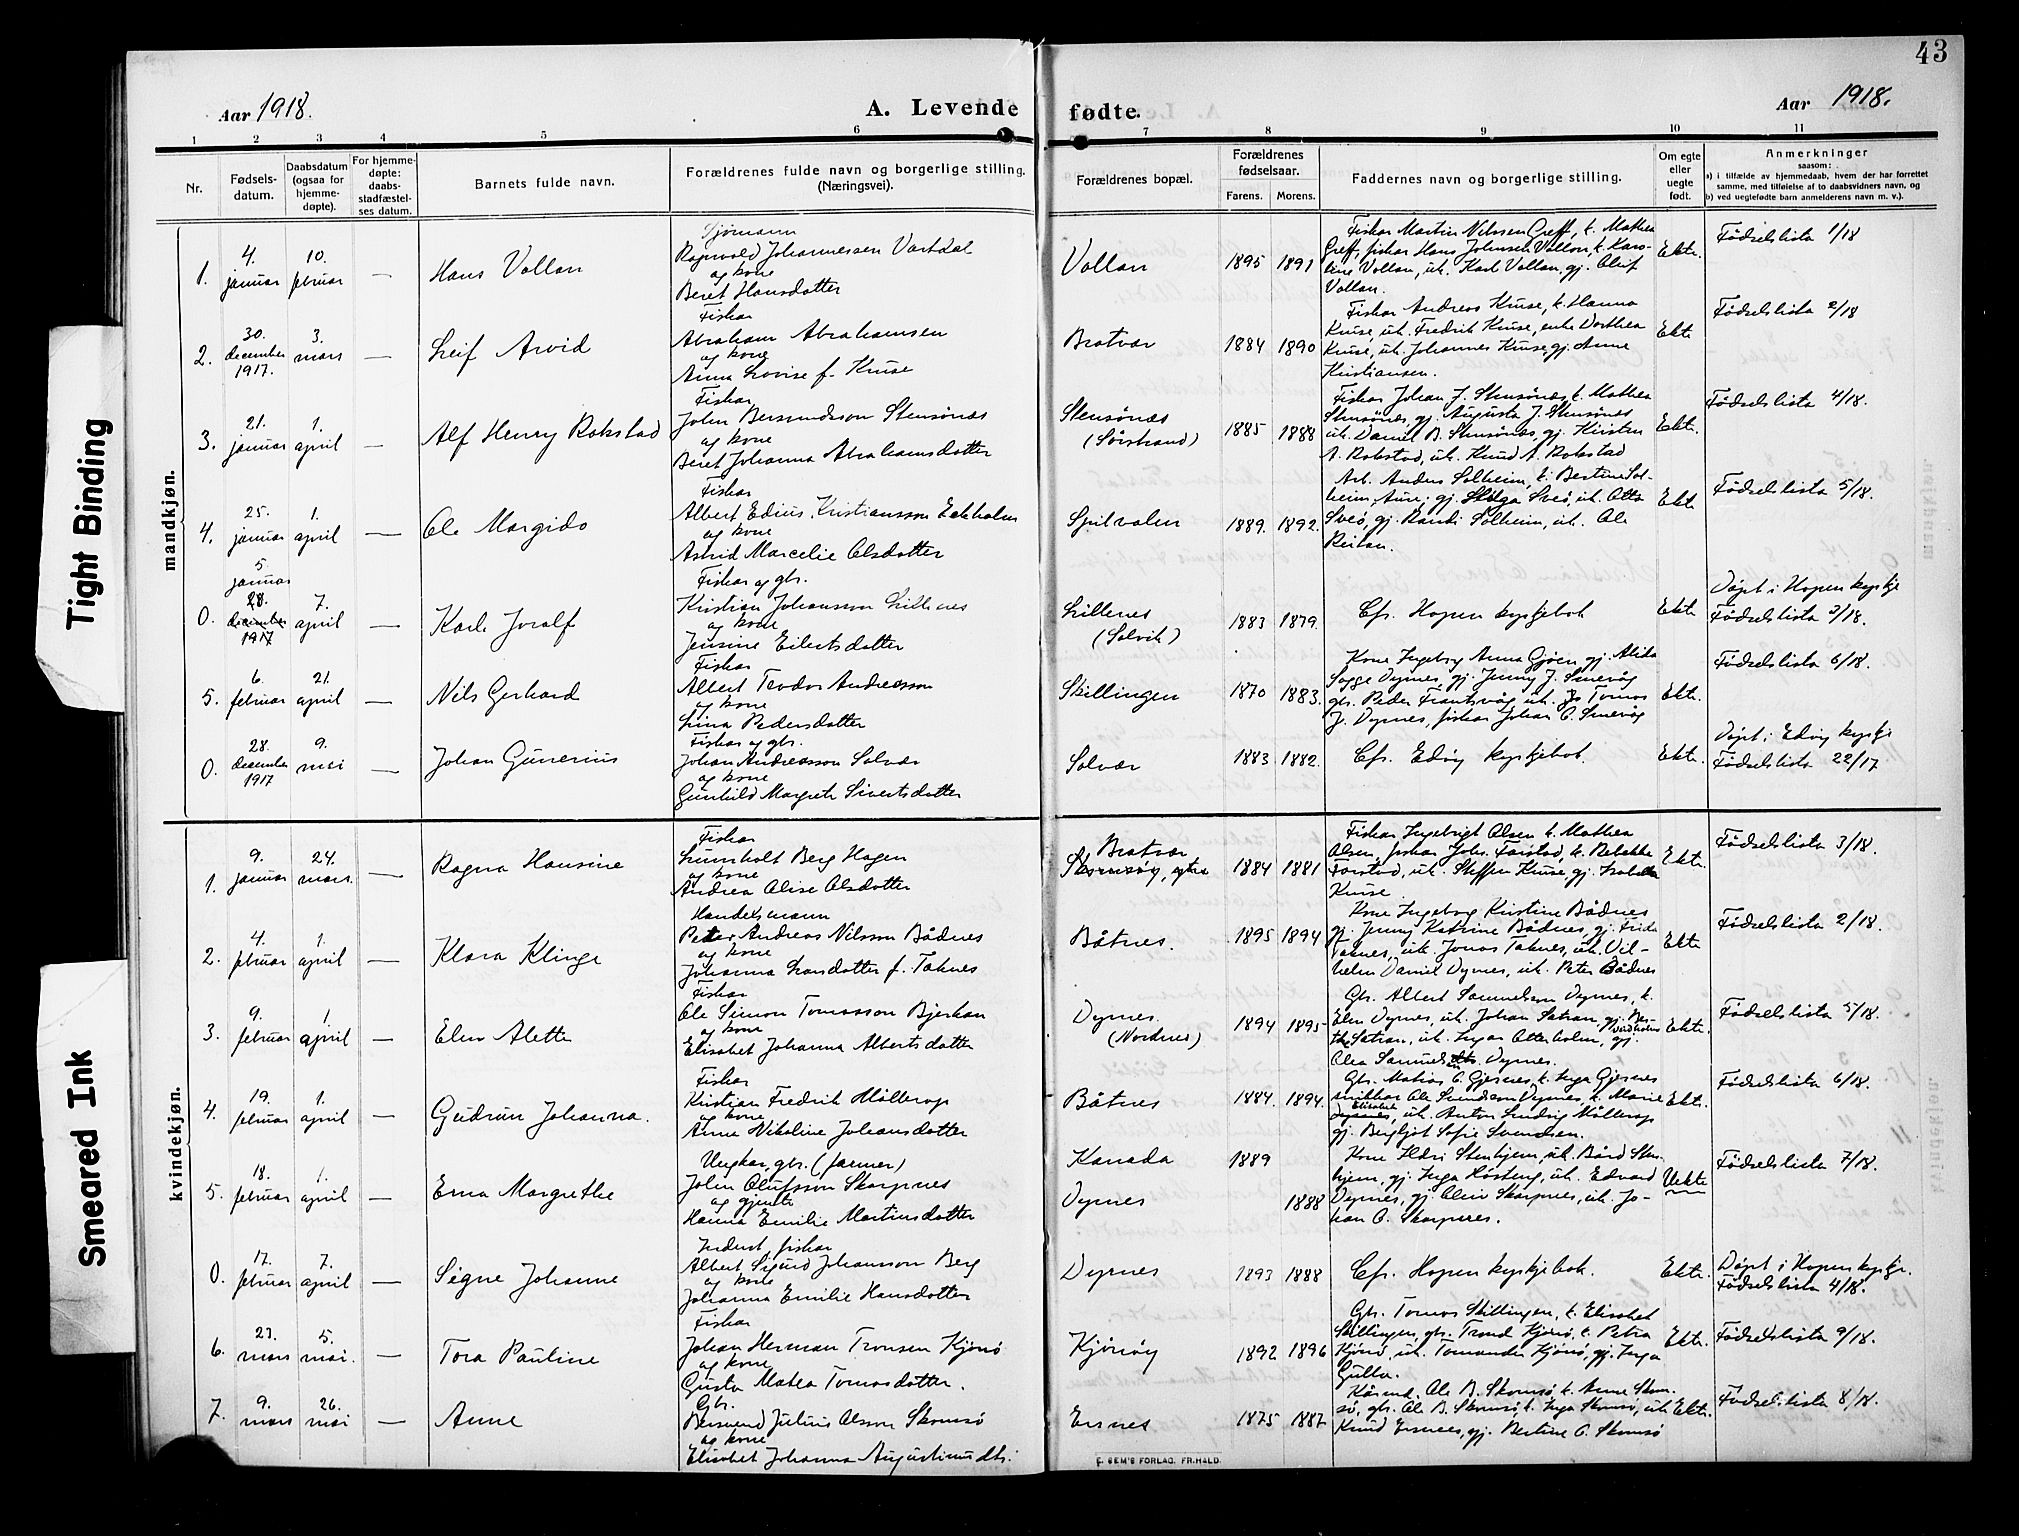 43
Aar 1918.
A. Levende fødte.
Aar 1918.
1 2 3 4 5 6 7 8 9 10 11
Nr.
Fødsels-
datum.
Daabsdatum
(ogsaa for
hjemme-
døpte).
For hjemme-
døpte:
daabs-
stadfæstel-
ses datum.
Barnets fulde navn.
Forældrenes fulde navn og borgerlige stilling.
(Næringsvei).
Forældrenes bopæl.
Forældrenes
fødselsaar.
Farens. Morens.
Faddernes navn og borgerlige stilling.
Om egte
eller
uegte
født.
Anmerkninger
saasom:
a) i tilfælde av hjemmedaab, hvem der har forrettet
samme, med tilføielse af to daabsvidners navn, og
b) ved uegtefødte barn anmelderens navn m. v.).
mandkjøn.
1.
4.
januar
10.
februar
—
Hans Vollan
Sjømann
Ragnvald Johannessen Vartdal
og kone
Beret Hansdatter
Vollan
1895 1891
Fiskar Martin Nilssen Greff, k. Mathea
Greff, fiskar Hans Johnsen Vollan, k. Karo-
line Vollan, uk. Karl Vollan, gj. Oluf
Vollan.
Ekte.
Fødselslista 1/18
2.
30.
december
1917.
3.
mars
—
Leif Arvid
Fiskar
Abraham Abrahamsen
og kone
Anna Lovise f. Kruse
Bratvær
1884 1890
Fiskar Andreas Kruse, k. Hanna
Kruse, uk. Fredrik Kruse, enke Dorthea
Kruse, uk. Johannes Kruse, gj. Anne
Kristiansen.
Ekte
Fødselslista 2/18
3.
21.
januar
1.
april
—
Alf Henry Rokstad
Fiskar
John Bersvendsson Stensønes
og kone
Beret Johanna Abrahamsdatter
Stensønes
(Sørstrand)
1885 1888
Fiskar Johan J. Stensønes, k. Mathea
Stensönes, gj. Augusta J. Stensönes
uk. Daniel B. Stensønes, gj. Kirsten
A. Rokstad, uk. Knud A. Rokstad
Ekte.
Fødselslista 4/18.
4.
25.
januar
1.
april
—
Ole Margido
Fiskar
Albert Edius Kristiansson Ekholm
og kone
Astrid Marcelie Olsdatter
1889. 1892.
Arb. Anders Solheim, k. Bertine Sol-
heim, Aure, gj. Helga Sveø, uk. Otto
Sveø, gj. Randi Solheim, uk. Ole
Reitan.
Ekte
Fødselslista 5/18.
0.
5.
januar
28.
december
1917
7.
april
—
Karl Joralf
Fiskar og gbr.
Kristian Johansson Lillenes
og kone
Jensine Eilertsdatter
Lillenes
(Solvik)
1883 1879.
Cfr. Hopen kyrkjebok.
Ekte
Døpt i Hopen kyrkje
Fødselslista 3/18.
5.
6.
februar
21.
april
—
Nils Gerhard
Fiskar
Albert Teodor Andreasson
og kone
Lina Pedersdatter
Skillingen
1870 1883.
Kone Ingeborg Anna Gjøen, gj. Alida
Sogge Dyrnes, gj. Jenny J. Smevåg
gbr. Peder Frantsvåg, uk. Tomas
J. Dyrnes, fiskar Johan C. Smevåg
Ekte.
Fødselslista 6/18.
0.
28.
december
1917
9.
mai
—
Johan Gunerius
Fiskar og gbr.
Johan Andreasson Solvær
og kone
Gunhild Margrete Sivertsdatter
Solvær
1883 1882.
Cfr. Edøy kyrkjebok.
Ekte.
Døpt i Edøy kyrkje
Fødselslista 22/17.
kvindekjøn.
1.
9.
januar
24.
mars.
Ragna Hansine
Fiskar
Lumholt Berg Hagen
og kone
Andrea Olise Olsdatter
Bratvær
Skarvsøy, ytre
1884 1881
Fiskar Ingebrigt Olsen, k. Mathea
Olsen, fiskar Joh. Farstad, k. Rebekka
Farstad, uk. Steffen Kruse, gj. Isabella
Kruse
Ekte.
Fødselslista 3/18.
2.
4.
februar
1.
april
—
Klara Klinge
Handelsmann
Peter Andreas Nilsson Bådnes
og kone
Johanna Larsdatter f. Taknes
Båtnes.
1895 1894
Kone Ingeborg Kristine Bådnes
gj. Jenny Katrine Bådnes, gj. Frida
Taknes, uk. Jonas Taknes, uk. Vil-
helm Daniel Dyrnes, uk. Peter Bådnes
Ekte
Fødselslista 2/18.
3.
9.
februar
1.
april
—
Elen Alette
Fiskar
Ole Simon Tomasson Bjerkan
og kone
Elisabet Johanna Albertsdatter
Dyrnes.
(Nordnes)
1894 1895
Gbr. Albert Samuelsen Dyrnes, k.
Elen Dyrnes, uk. Johan Satran, gj.
Satran, uk. Ingar Otterholm, gj.
Olea Samuels Dyrnes.
Ekte.
Fødselslista 5/18.
4.
19.
februar
1.
april
—
Gudrun Johanna.
Fiskar
Kristian Fredrik Møllerop
og kone
Anna Nikoline Johansdatter
Båtnes
1884. 1894.
Gbr. Matias C. Gjesnes, k. Inga Gjesnes
snikkar Ole Svendsen Dyrnes, k. Marie
Elisabet
Dyrnes, uk. Anton Ludvig Møllerop
gj. Bergljot Sofie Svendsen.
Ekte.
Fødselslista 6/18.
5.
18.
februar
1.
april
—
Erna Margrethe
Ungkar, gbr. (farmer)
John Olufsson Skarpnes
og gjente
Hanna Emilie Martinsdatter
Kanada
Dyrnes
1889
1888
Kone Hdri Stenhjem, uk. Bård Sten-
hjem, gj. Inga Høsteng, uk. Edvard
Dyrnes, gj. Oline Skarpnes, uk. Jo-
han O. Skarpnes.
Uekte
Fødselslista 7/18.
0.
17.
februar
7.
april
—
Signe Johanne
Inderst, fiskar
Albert Sigurd Johansson Berg
og kone
Johanna Emilie Hansdatter
Dyrnes
1893 1888
Cfr. Hopen kyrkjebok.
Ekte.
Døpt i Hopen kyrkje.
Fødselslista 4/18.
6.
23.
mars
5.
mai.
—
Tora Pauline
Fiskar
Johan Herman Tronsen Kjørsø
og kone
Gusta Matea Tomasdatter.
Kjørsøy
1892 1896
Gbr. Tomas Skillingen, k. Elisabet
Skillingen, gbr. Trond Kjørsø, k. Petra
Kjørsø, uk. Tomander Kjørsø, gj. Inga
Gulla.
Ekte.
Fødselslista 9/18.
7.
9.
mars
26.
mai
—
Anne
Gbr.
Bersvend Julius Olsson Skomsø
og kone
Elisabet Johanna Augustinusdtr.
Ersnes
1875 1887.
Kårmd. Ole B. Skomsø, k. Anne Skom-
sø, gbr. Ole B. Skomsø, k. Inga Skomsø, uk.
Knud Ersnes, gj. Bertine O. Skomsø
Ekte.
Fødselslista 8/18.
E. SEM'S FORLAG, FR.HALD.
Tight Binding
Smeared Ink